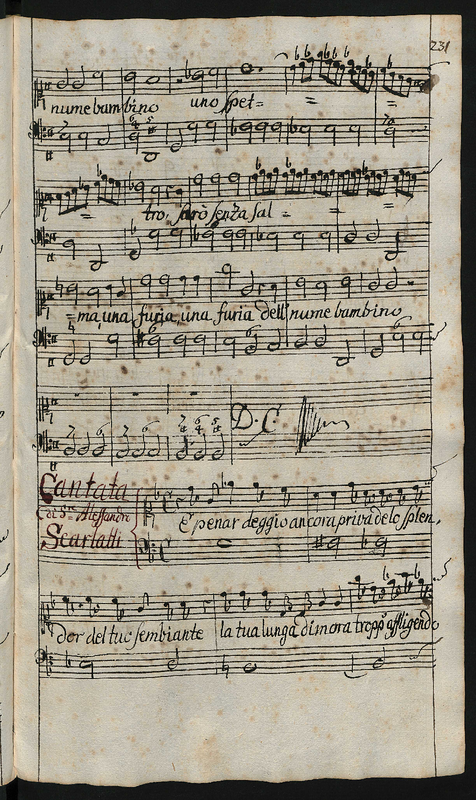 231
nume bambino uno spet=
tro, sarò senza sal=
=ma, una furia, una furia dell' nume bambino
D. C.
Cantata
di Sr. Alessandro
Scarlatti
E penar deggio ancora priva de lo splen,
dor del tuo sembiante la tua lunga dimora tropp' affligendo